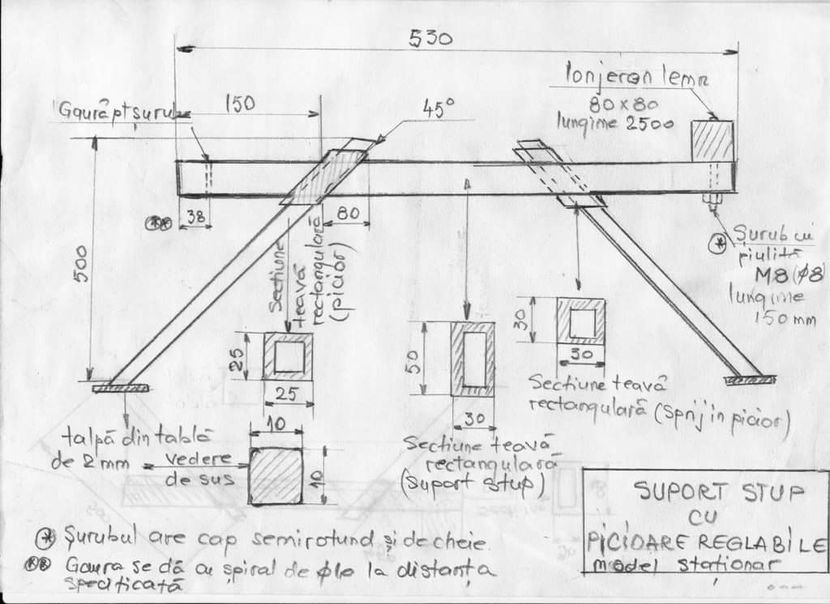 530
150
45°
lonjeron lemn
80 x 80
lungime 2500
Gaură pt șurub
500
38
80
Sectiune
teavă
rectangulară
(picior)
Șurub cu
piuliță
M8 (ϕ8)
lungime
150 mm
25
25
50
30
30
30
Sectiune teavă
rectangulară (Sprijin picior)
Sectiune teavă
rectangulară
(Suport stup)
talpă din tablă
de 2 mm
vedere
de sus
10
10
SUPORT STUP
CU
PICIOARE REGLABILE
model staționar
* Șurubul are cap semirotund și de cheie.
** Gaura se dă cu spiral de ϕ10 la distanța
specificată